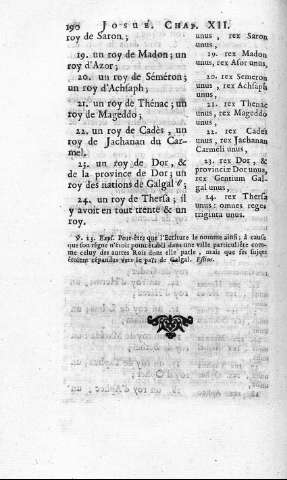 190 JOSUÉ. CHAP. XII.
roy de Saron;
19. un roy de Madon; un
roy d'Azor;
20. un roy de Séméron;
un roy d'Achsaph;
21. un roy de Thénac; un
roy de Mageddo;
22. un roy de Cadès, un
roy de Jachanan du Car-
mel.
23. un roy de Dor, &
de la province de Dor; un
roy des nations de Galgal;
24. un roy de Thersa; il
y avoit en tout trente & un
roy.
unus, rex Saron
unus,
19. rex Madon
unus, rex Asor unus,
20. rex Semeron
unus, rex Achsaph
unus,
21. rex Thenac
unus, rex Mageddo
unus,
22. rex Cades
unus, rex Jachanan
Carmeli unus,
23. rex Dor, &
provinciæ Dor unus,
rex Gentium Gal-
gal unus,
24. rex Thersa
unus: omnes reges
triginta unus.
V. 23. Expl. Peut-être que l'Ecriture le nomme ainsi; à cause
que son régne n'étoit point établi dans une ville particuliére com-
me celuy des autres Rois dont elle parle, mais que ses sujets
étoient répandus vers le païs de Galgal. Estius.